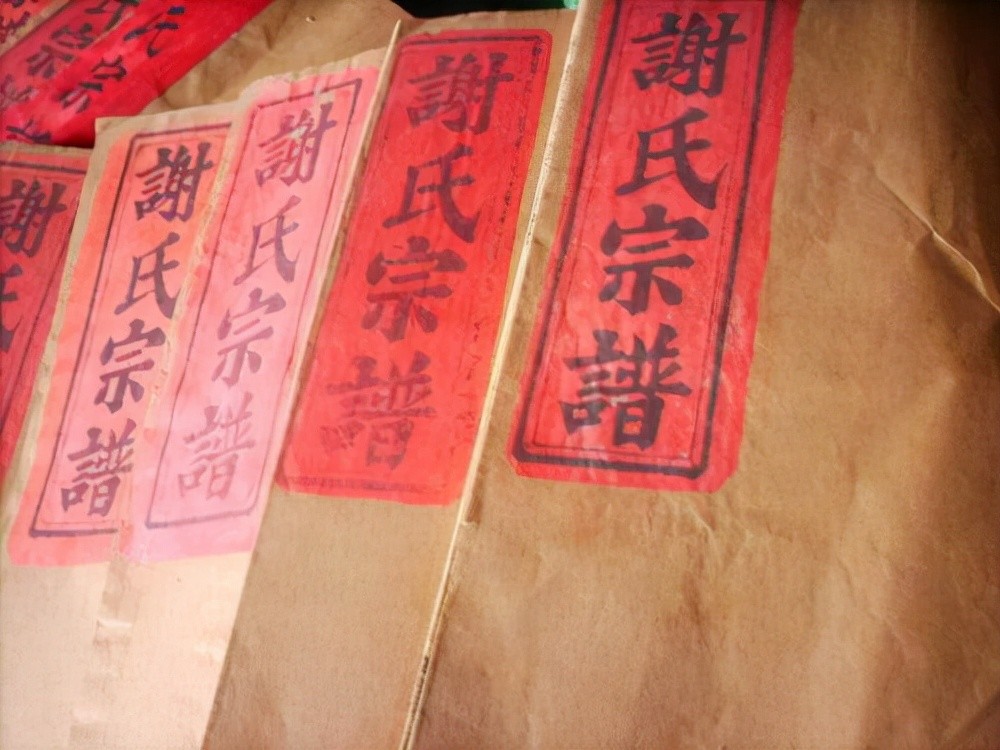 謝氏宗譜
謝氏宗譜
謝氏宗譜
謝氏宗譜
謝氏
氏宗
宗